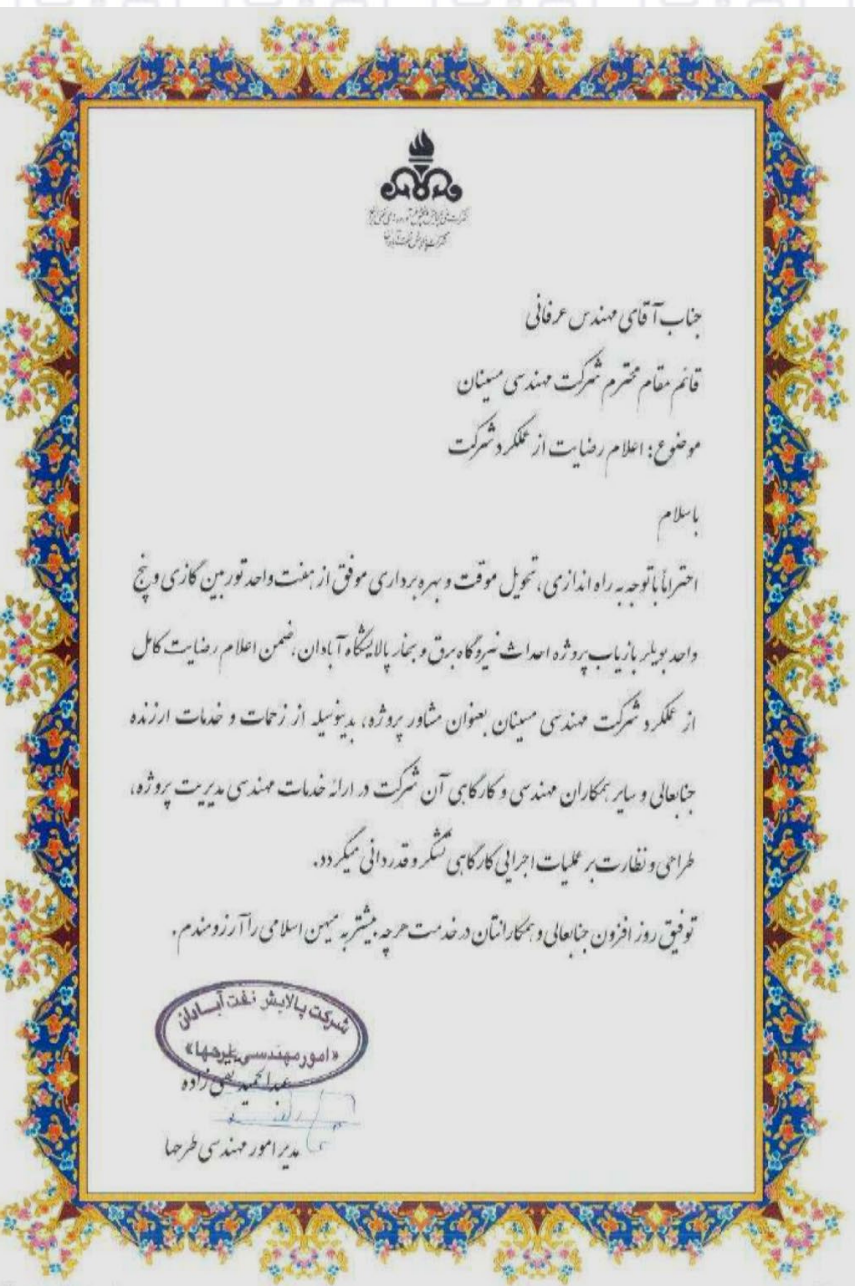 شرکت ملی پالایش و پخش فرآورده های نفتی ایران
شرکت پالایش نفت آبادان
جناب آقای مهندس عرفانی
قائم مقام محترم شرکت مهندسی مسینان
موضوع: اعلام رضایت از عملکرد شرکت
باسلام
احتراماً باتوجه به راه اندازی، تحویل موقت و بهره برداری موفق از هفت واحد توربین گازی و پنج
واحد بویلر بازیاب پروژه احداث نیروگاه برق و بخار پالایشگاه آبادان، ضمن اعلام رضایت کامل
از عملکرد شرکت مهندسی مسینان بعنوان مشاور پروژه، بدینوسیله از زحمات و خدمات ارزنده
جنابعالی و سایر همکاران مهندسی و کارگاهی آن شرکت در ارائه خدمات مهندسی مدیریت پروژه،
طراحی و نظارت بر عملیات اجرایی کارگاهی تشکر و قدردانی میگردد.
توفیق روز افزون جنابعالی و همکارانتان در خدمت هرچه بیشتر به میهن اسلامی را آرزومندم.
شرکت پالایش نفت آبادان
«امور مهندسی طرحها»
عبدالحمید زاده
مدیر امور مهندسی طرحها